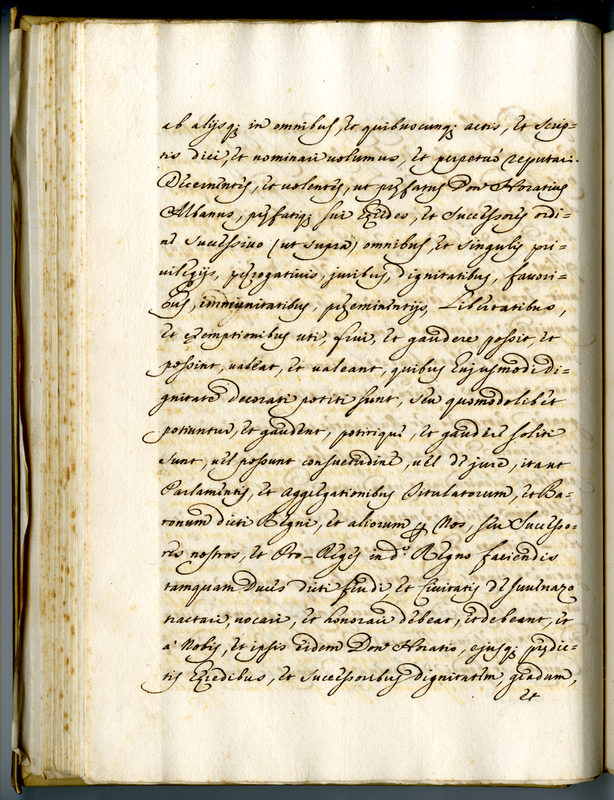 ab alijsq; in omnibus, et quibuscunq; actis, et scrip=
tis dici, et nominari volumus, et perpetuò reputari.
Decernentes, et volentes, ut præfatus Don Horatius
Albanus, præfatiq; sui Eredes, et Successores ordi=
ne successivo (ut supra) omnibus, et singulis pri=
vilegijs, perrogativis, juribus, dignitatibus, favori=
bus, immunitatibus, preeminentijs, Libertatibus,
et exemptionibus uti, frui, et gaudere possit, et
possint, valeat, et valeant, quibus Eujusmodi di=
gnitate decorati potiti sunt, seu quomodolibet
potiuntur, et gaudent, potirique, et gaudere soliti
sunt, vel possunt consuetudine, vel de jure, itaut
Parlamentis, et Aggregationibus Titulatorum, et Ba=
ronum dicti Regni, et aliorum per Nos, seu Successo=
res nostros, et Pro-Reges in do. Regno faciendis
tamquam Duces dicti feudi, et Civitatis de
tractari, vocari, et honorari debeat, et debeant, et
a' Nobis, et ipsis Eidem Don Horatio, ejusq; prædic=
tis Eredibus, et Successoribus dignitatem, gradum,
et